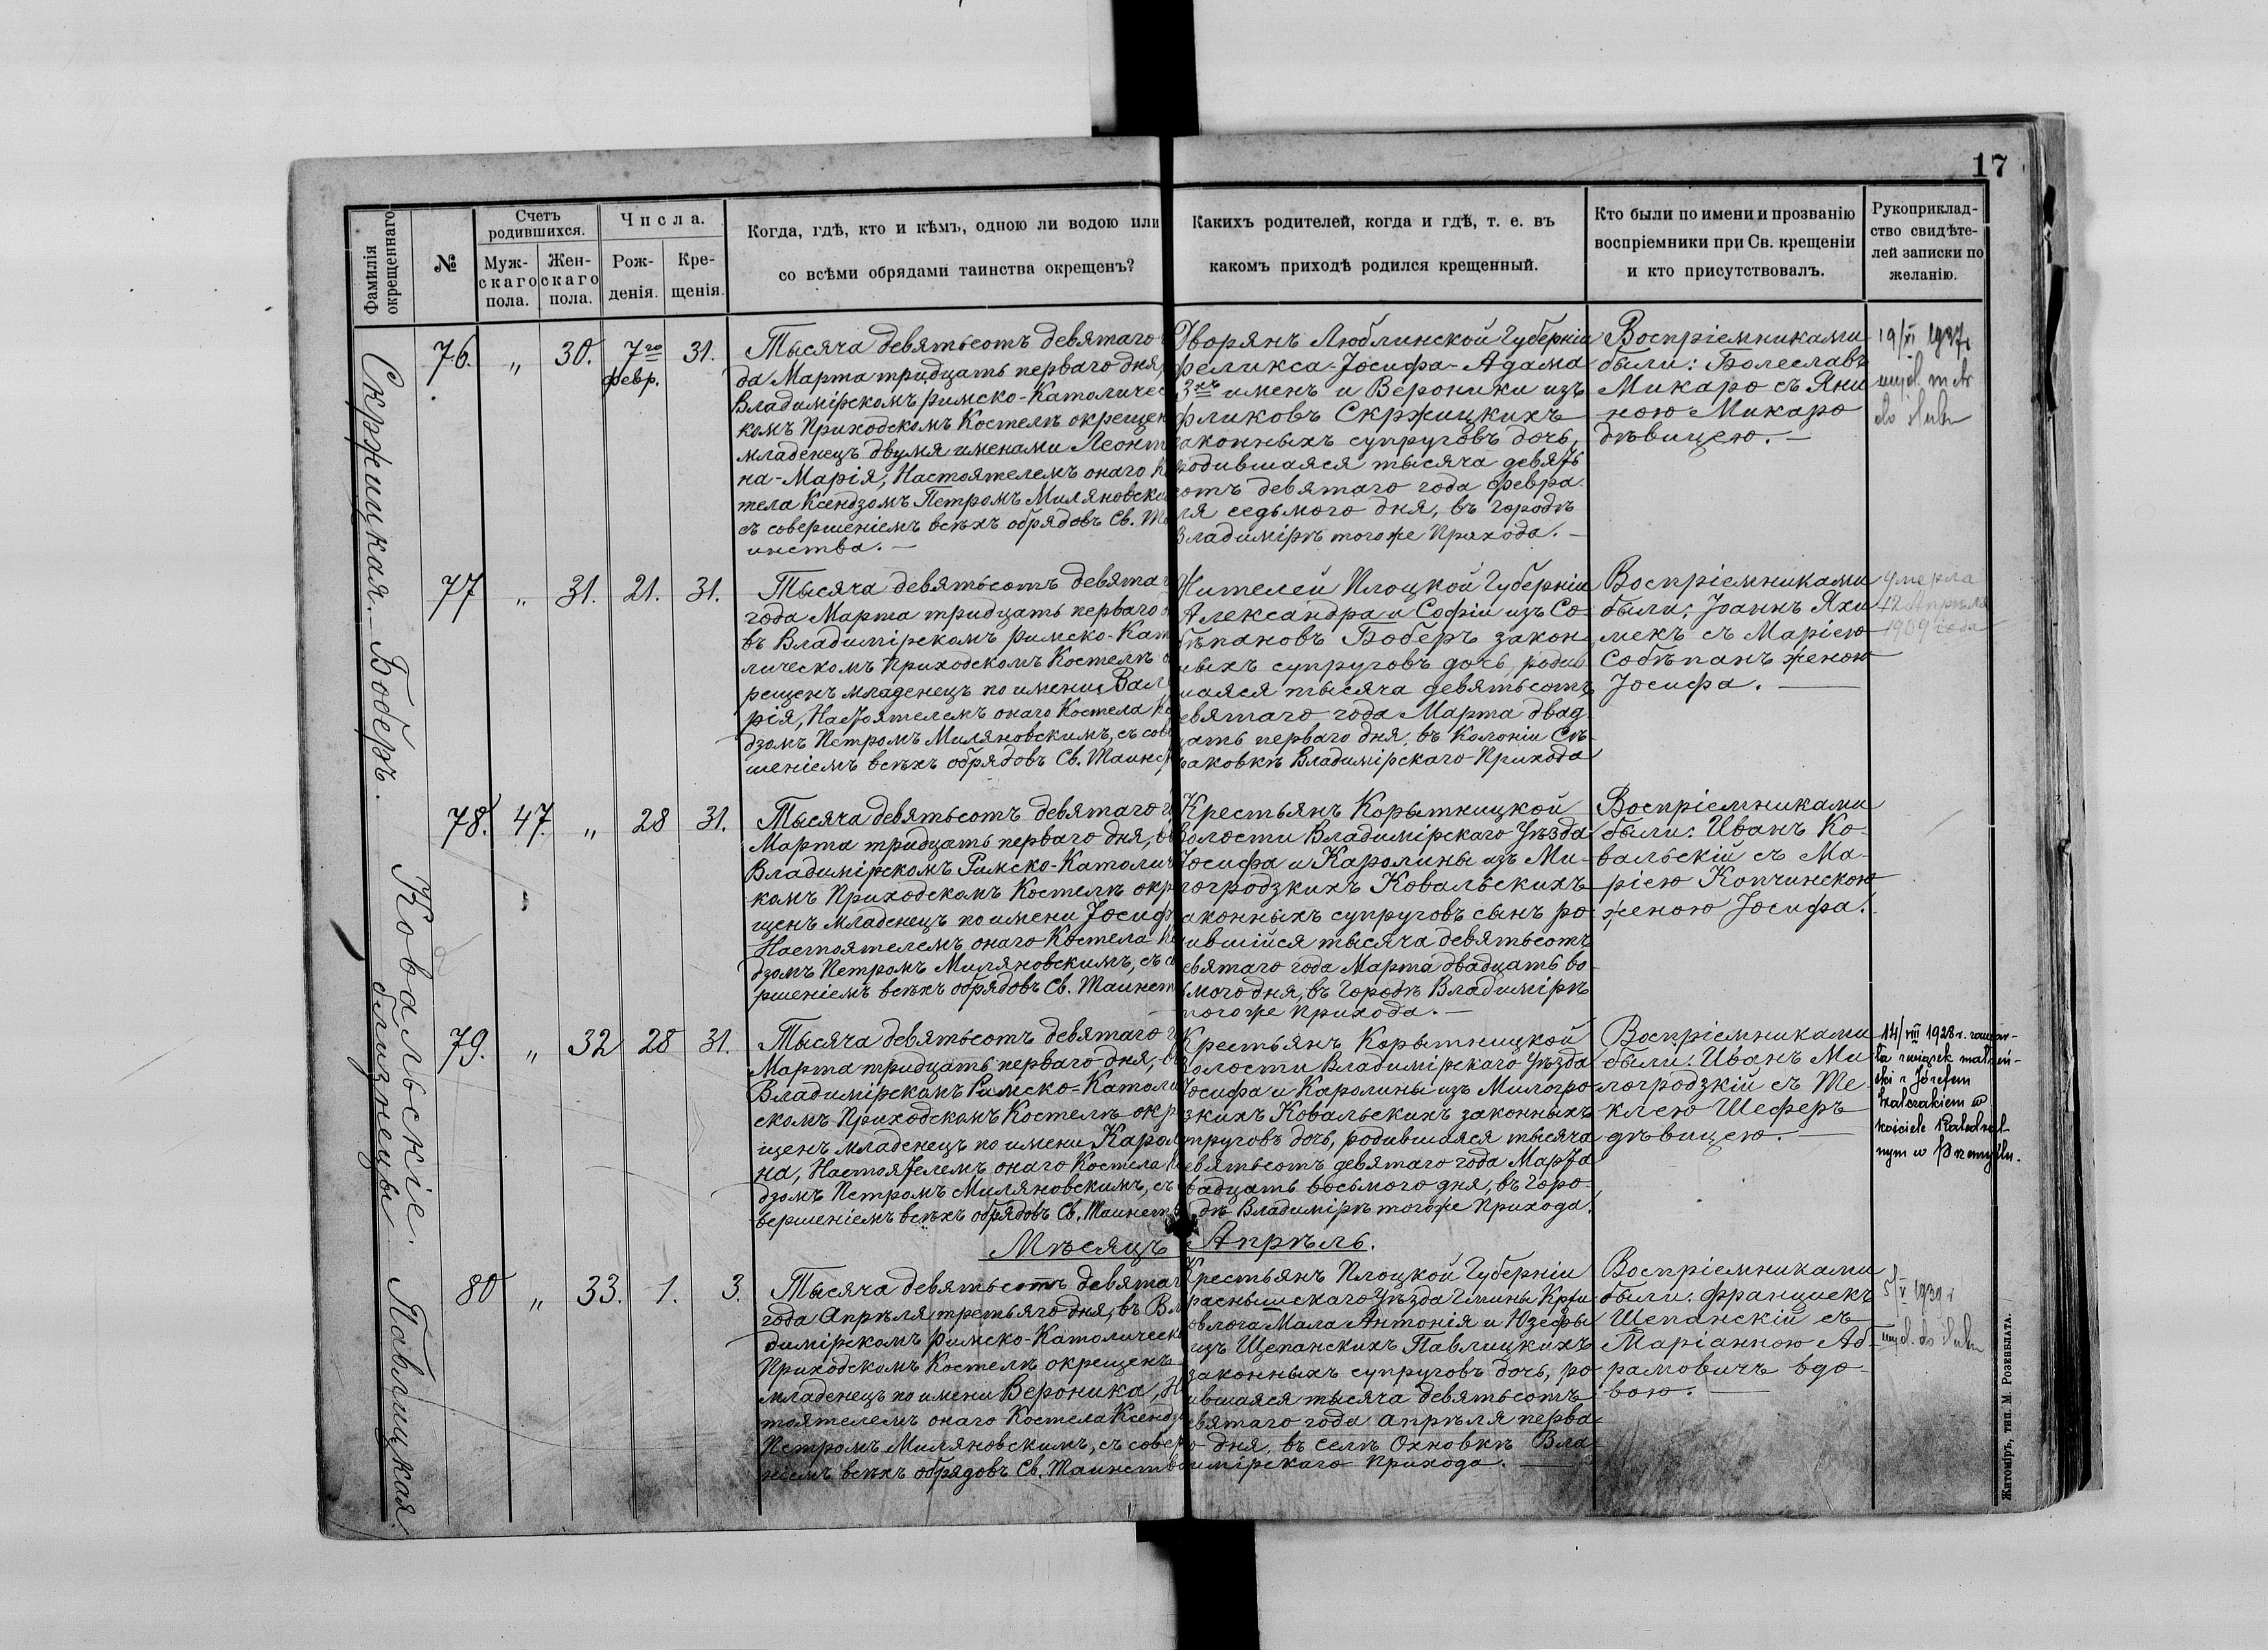 17
Фамилія окрещеннаго
№
Счетъ родившихся.
Муж-скаго пола.
Жен-скаго пола.
Числа.
Рож-денія.
Кре-щенія.
Когда, гдѣ, кто и кѣмъ, одною ли водою или
со всѣми обрядами таинства окрещенъ?
Какихъ родителей, когда и гдѣ, т. е. въ
какомъ приходѣ родился крещенный.
Кто были по имени и прозванію
воспріемники при Св. крещеніи
и кто присутствовалъ.
Рукоприклад-
ство свидѣте-
лей записки по
желанію.
Скржицкая.
76. „ 30. 7го февр. 31.
Тысяча девятьсотъ девятаго
да Марта тридцать перваго дня
Владимірскомъ римско-Католичес
комъ Приходскомъ Костелѣ окрещен
младенецъ двумя именами Леонт
на-Марія, Настоятелемъ онаго К
тела Ксендзомъ Петромъ Миляновски
съ совершеніемъ всѣхъ обрядовъ Св. Та
инства. —
Дворянъ Люблинской Губерніи
Феликса-Іосифа-Адама
3хъ именъ и Вероники изъ
Фликовъ Скржицкихъ
аконныхъ супруговъ дочь,
родившаяся тысяча девять
сотъ девятаго года Февра-
ля седьмого дня, въ городѣ
Владимірѣ тогоже Прихода. —
Воспріемниками
были: Болеславъ
Микаро съ Яни
ною Микаро
дѣвицею. —
19/XI 1937r
do ślubu
Боберъ.
77 „ 31. 21. 31.
Тысяча девятьсотъ девята
года Марта тридцать перваго
въ Владимірскомъ римско-Кат
лическомъ Приходскомъ Костелѣ о
рещенъ младенецъ по имени Вале
рія, Настоятелемъ онаго Костела Кс
дзомъ Петромъ Миляновскимъ, съ сов
шеніемъ всѣхъ обрядовъ Св. Таинс
Жителей Плоцкой Губерніи
Александра и Софіи изъ Со-
бѣпановъ Боберъ закон
ныхъ супруговъ дочь, родив
шаяся тысяча девятьсотъ
евятаго года Марта двад
цать перваго дня, въ Колоніи Съ-
раковкѣ Владимірскаго Прихода
Воспріемниками
были: Іоаннъ Яхи
мекъ съ Маріею
Собѣпанъ женою
Іосифа. —
Умерла
12 Апрѣля
1909 года
Ковальскіе.
близнецы
78. 47. „ 28 31.
Тысяча девятьсотъ девятаго г
Марта тридцать перваго дня, въ
Владимірскомъ Римско-Католич
комъ Приходскомъ Костелѣ окр
щенъ младенецъ по имени Іосиф
Настоятелемъ онаго Костела К
дзомъ Петромъ Миляновскимъ, съ с
ршеніемъ всѣхъ обрядовъ Св. Таинст
Крестьянъ Корытницкой
Волости Владимірскаго Уѣзда
Іосифа и Каролины изъ Ми-
логродзкихъ Ковальскихъ
аконныхъ супруговъ сынъ ро-
дившійся тысяча девятьсотъ
евятаго года Марта двадцать во-
ьмого дня, въ городѣ Владимірѣ
тогоже прихода. —
Воспріемниками
были: Иванъ Ко-
вальскій съ Ма-
ріею Копчинскою
женою Іосифа.
79. „ 32 28 31.
Тысяча девятьсотъ девятаго г
Марта тридцать перваго дня, въ
Владимірскомъ Римско-Католи
скомъ Приходскомъ Костелѣ окр
щенъ младенецъ по имени Карол
на, Настоятелемъ онаго Костела К
дзомъ Петромъ Миляновскимъ, съ
вершеніемъ всѣхъ обрядовъ Св. Таинст
Крестьянъ Корытницкой
Волости Владимірскаго Уѣзда
Іосифа и Каролины изъ Милогро
зкихъ Ковальскихъ законныхъ
упруговъ дочь, родившаяся тысяча
евятьсотъ девятаго года Марта
вадцать восьмого дня, въ горо-
дѣ Владимірѣ тогоже Прихода.
Воспріемниками
были: Иванъ Ми
логродзкій съ Те-
клею Шеферъ
дѣвицею. —
14/VIII 1928 r. zawar-
ła związek małżeń-
ski z Józefem
kościele Katedral-
nym w Przemyślu.
Мѣсяцъ Апрѣль.
Павлицкая.
80 „ 33. 1. 3.
Тысяча девятьсотъ девятаг
года Апрѣля третьяго дня, въ Вл
димірскомъ римско-Католическо
Приходскомъ Костелѣ окрещенъ
младенецъ по имени Вероника, Н
тоятелемъ онаго Костела Ксендз
Петромъ Миляновскимъ, съ совер
ніемъ всѣхъ обрядовъ Св. Таинств
Крестьянъ Плоцкой Губерніи
Уѣзда Гмины
Мала Антонія и Юзефы
изъ Щепанскихъ Павлицкихъ
законныхъ супруговъ дочь, ро
ившаяся тысяча девятьсотъ
евятаго года апрѣля перва-
о дня, въ селѣ Охновкѣ Вла
имірскаго прихода. —
Воспріемниками
были: Францискъ
Щепанскій съ
Маріанною Аб-
рамовичъ вдо-
вою. —
5/V 1939 r
do ślubu
Житоміръ, тип. М. Розенблата.